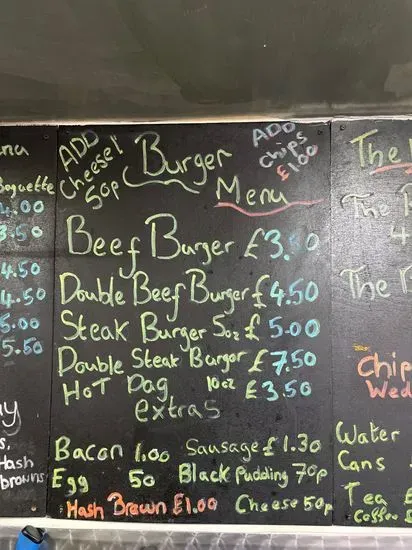 ADD
Cheese!
50p
Burger
Menu
ADD
chips
£1.00
Beef Burger
Double Beef Burger £4.50
Steak Burger 5oz £5.00
Double Steak Burger 10oz £7.50
HoT Dog £3.50
extras
Bacon 1.00 Sausage £1.30
Egg 50 Black Pudding 70p
Hash Brown £1.00 Cheese 50p
Baguette
4.00
3.50
4.50
4.50
5.00
5.50
Hash
browns
The
The
The
Chip
Wed
Water
Cans
Tea £
Coffee